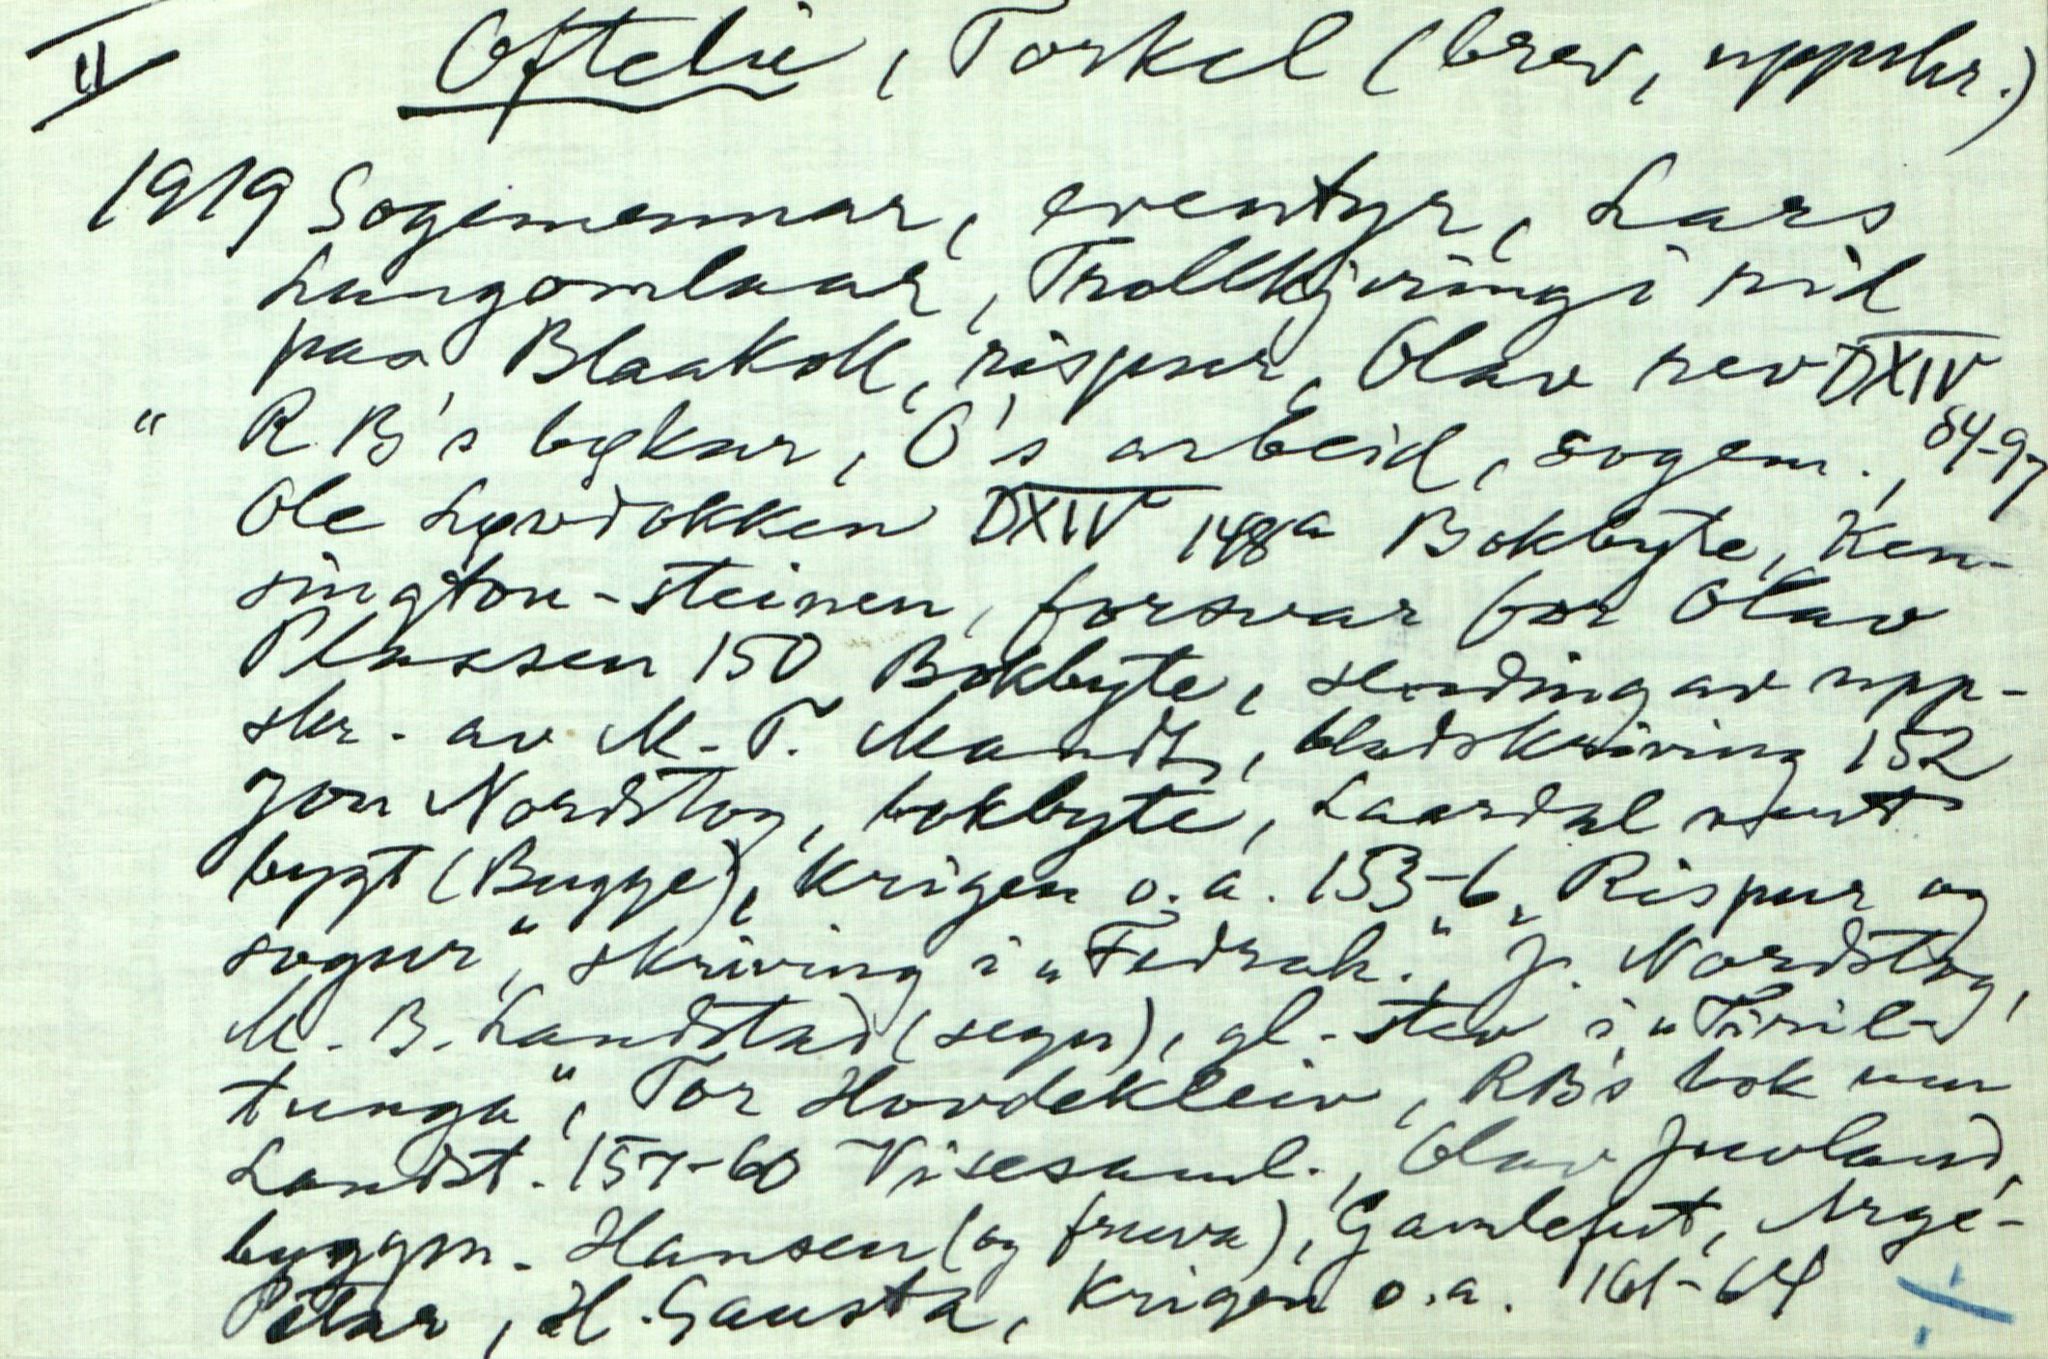 II Oftelie, Torkel (brev, uppskr.)
1919 Sogemennar, eventyr, Lars
Langomlaar, Trollkjæringi rid
paa Blaakoll, rispur, Olav rev DXIV
84-97
" R B's bøkur, O's arbeid, sogem.,
Ole Løvdokken DXIV 148a Bokbyte, Ken-
sington-steinen, forsvar for Olav
Plassen 150 Bokbyte, sending av upp-
skr. av M. T. Mandt, bladskriving 152
Jon Nordstog, bokbyte, Laardal vent
bygt (Bugge), krigen o.a. 153-6 „Rispur og
sogur", skriving i „Fedrah." J. Nordstog,
M. B. Landstad (segn), gl. stev i „Tiril-
tunga", Tor Hovdekleiv, RB's bok um
Landst. 157-60 Visesaml., Olav Juvland,
byggm. Hansen (og fruva), Gamlefut, Arge-
Petar, H. Gausta, krigen o.a. 161-64